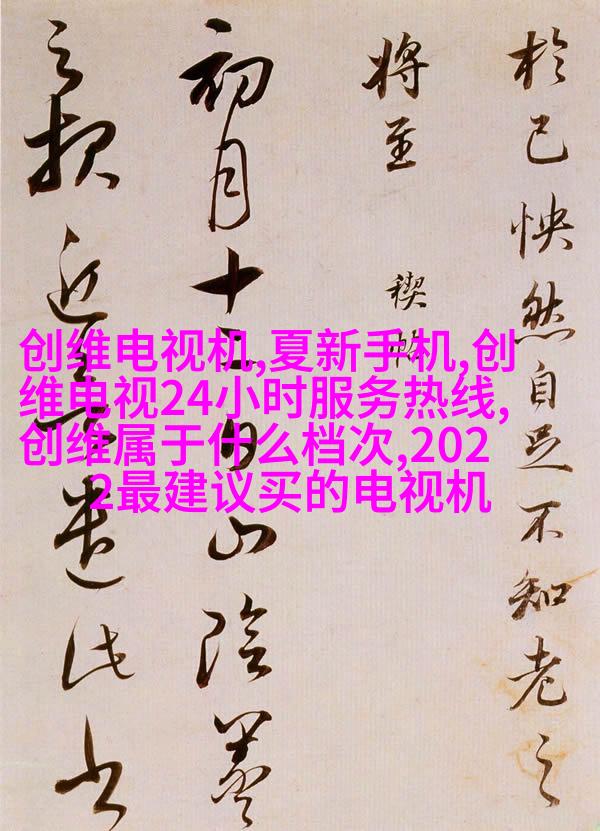 於己怏然自足不知老之
將至
禊帖
初月十二日山陰羲
之报近遣此书
创维电视机,夏新手机,创
维电视24小时服务热线,
创维属于什么档次,202
2最建议买的电视机